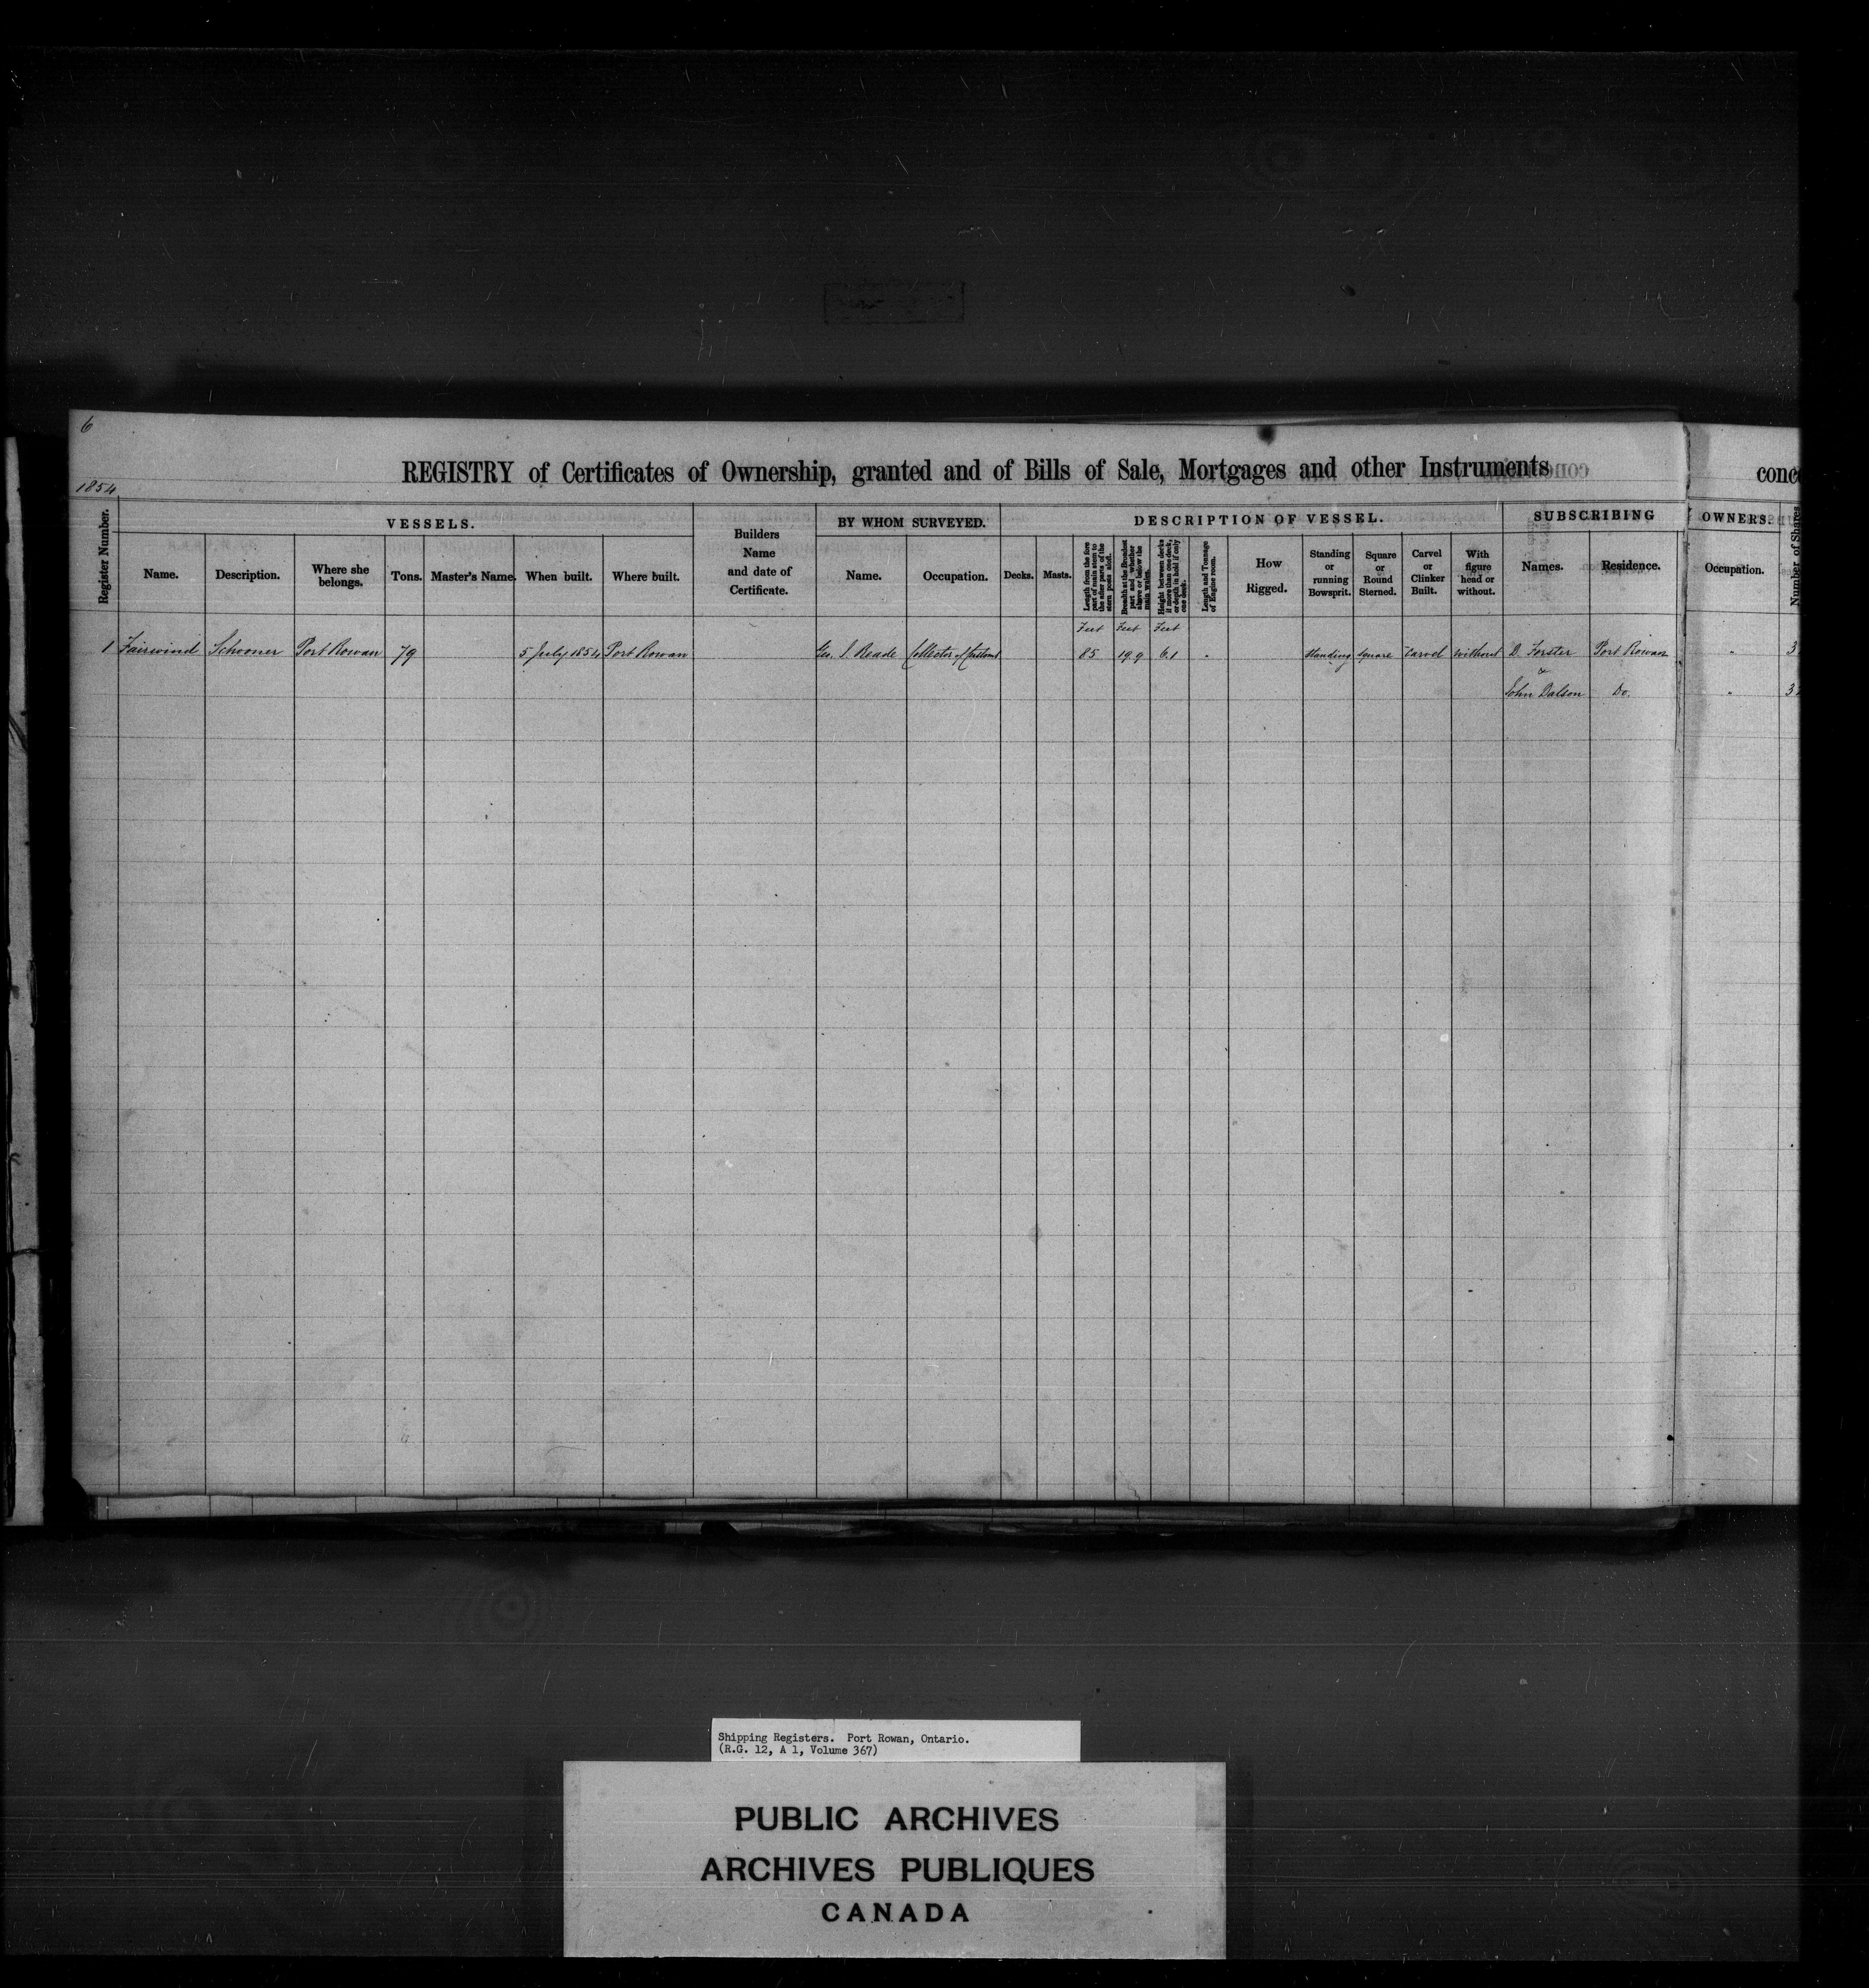 6
REGISTRY of Certificates of Ownership, granted and of Bills of Sale, Mortgages and other Instruments
conc
1854
Register Number.
VESSELS.
Name.
Description.
Where she belongs.
Tons.
Master's Name.
When built.
Where built.
Builders Name and date of Certificate.
BY WHOM SURVEYED.
Name.
Occupation.
DESCRIPTION OF VESSEL.
Decks.
Masts.
Length from the fore part of main stem to the after parts of the stern posts aloft.
Breadth at the Broadest part and whether above or below the main wales.
Height between decks if more than one deck, or depth in hold if only one deck.
Length and Tonnage of Engine room.
How Rigged.
Standing or running Bowsprit.
Square or Round Sterned.
Carvel or Clinker Built.
With figure head or without.
SUBSCRIBING
OWNERS.
Names.
Residence.
Occupation.
Number of Shares
Feet Feet Feet
1 Fairwind Schooner Port Rowan 79 5 July 1854 Port Rowan Geo. S. Reade Collector of Customs 85 19.9 6.1 " Standing Square Carvel Without D. Forster Port Rowan " 3
&
John Dalson Do. " 32
Shipping Registers. Port Rowan, Ontario.
(R.G. 12, A 1, Volume 367)
PUBLIC ARCHIVES
ARCHIVES PUBLIQUES
CANADA